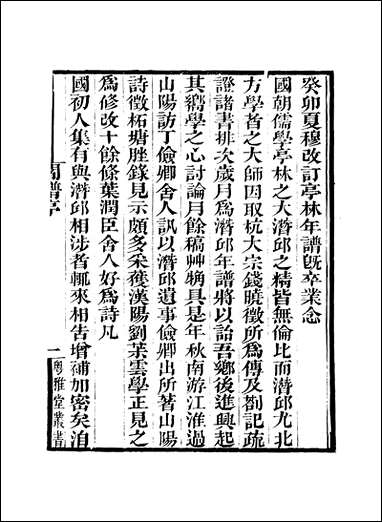 癸卯夏穆改訂亭林年譜旣卒業念
國朝儒學亭林之大潛邱之精皆無倫比而潛邱尤北
方學者之大師因取杭大宗錢曉徵所爲傳及劄記疏
證諸書排次歲月爲潛邱年譜將以詒吾鄉後進興起
其嚮學之心討論月餘稿艸觕具是年秋南游江淮過
山陽訪丁儉卿舍人訊以潛邱遺事儉卿出所著山陽
詩徵柘塘脞錄見示頗多采獲漢陽劉茮雲學正見之
爲修改十餘條葉潤臣舍人好爲詩凡
國初人集有與潛邱相涉者輒來相告增補加密矣洎
閻譜序
一
粵雅堂叢書